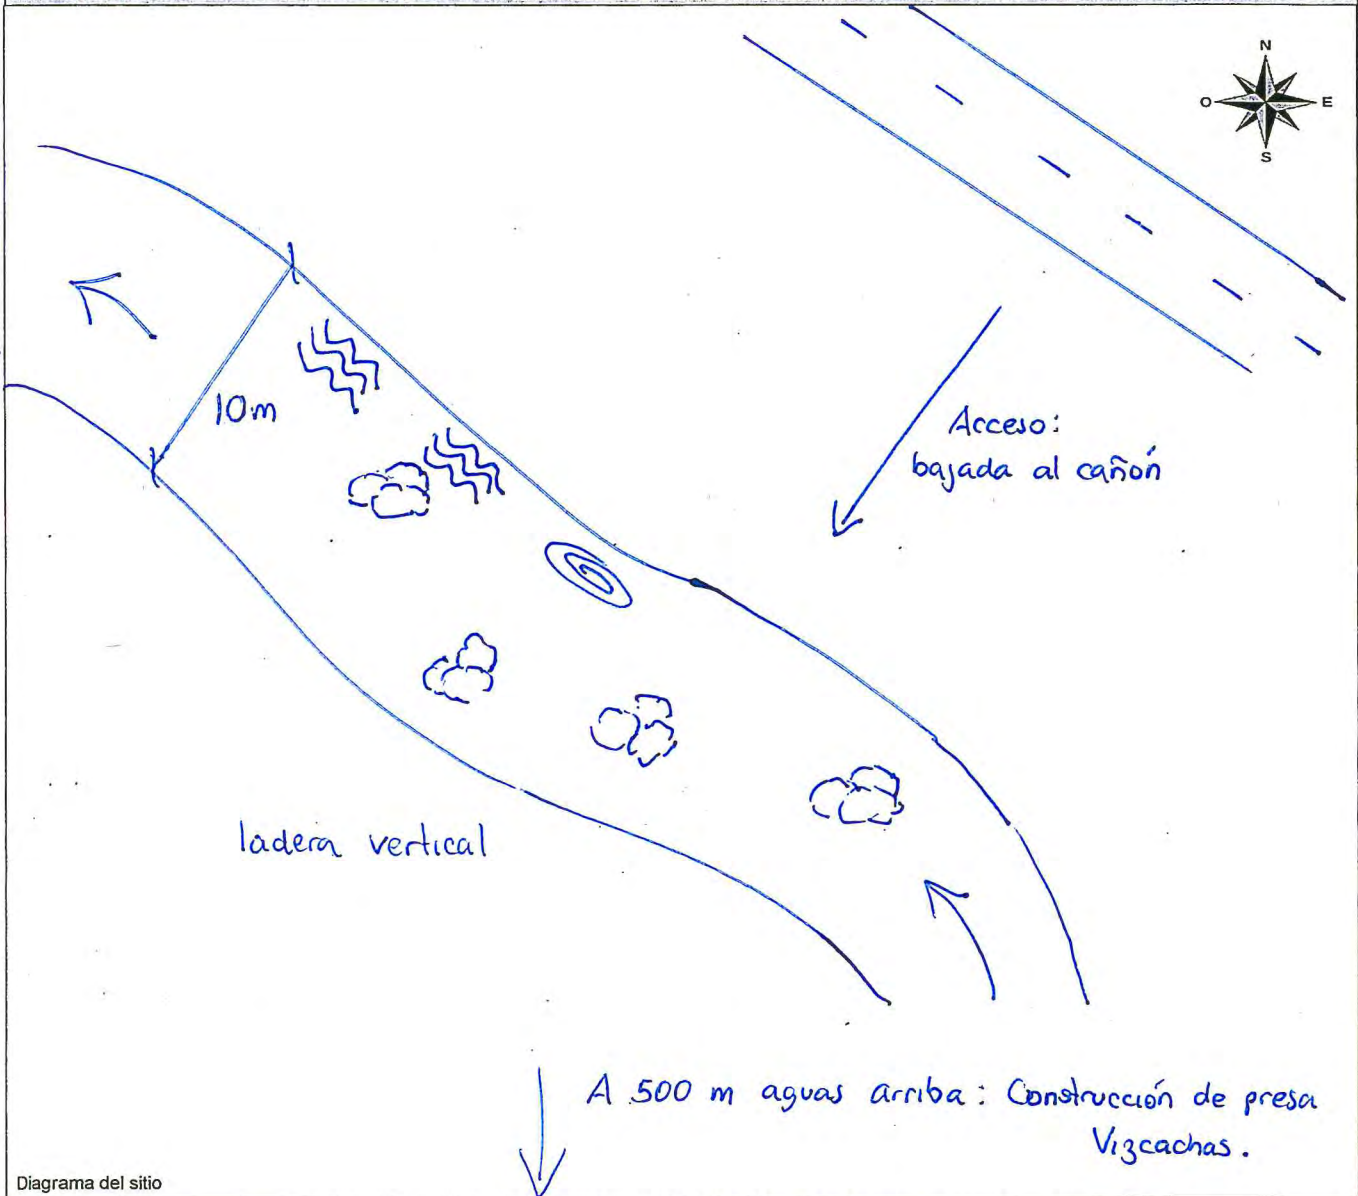 N
O E
S
10m
Acceso:
bajada al cañón
ladera vertical
A 500 m aguas arriba: Construcción de presa
Vizcachas.
Diagrama del sitio